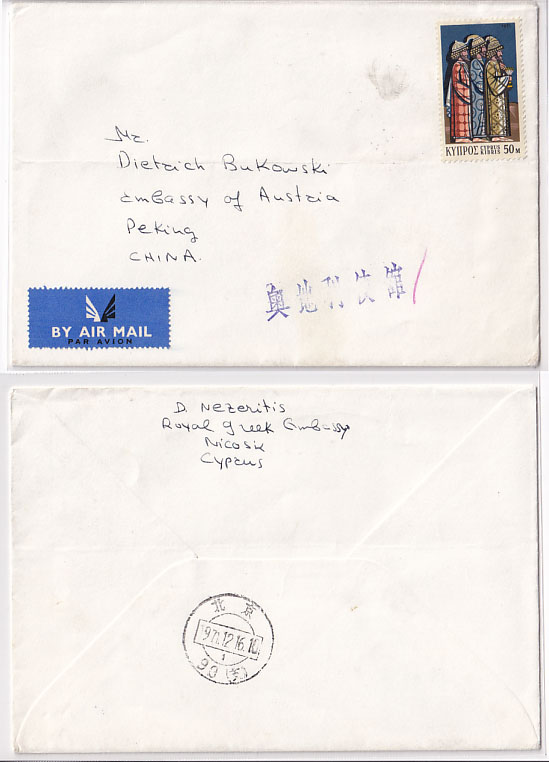 ΚΥΠΡΟΣ CYPRUS KIBRIS 50 M
Mr.
Dietrich Bukowski
Embassy of Austria
Peking
CHINA.
奥地利使館
BY AIR MAIL
PAR AVION
D. Nezeritis
Royal Greek Embassy
Nicosia
Cyprus
北京
1971.12.16.10
1
90(支)